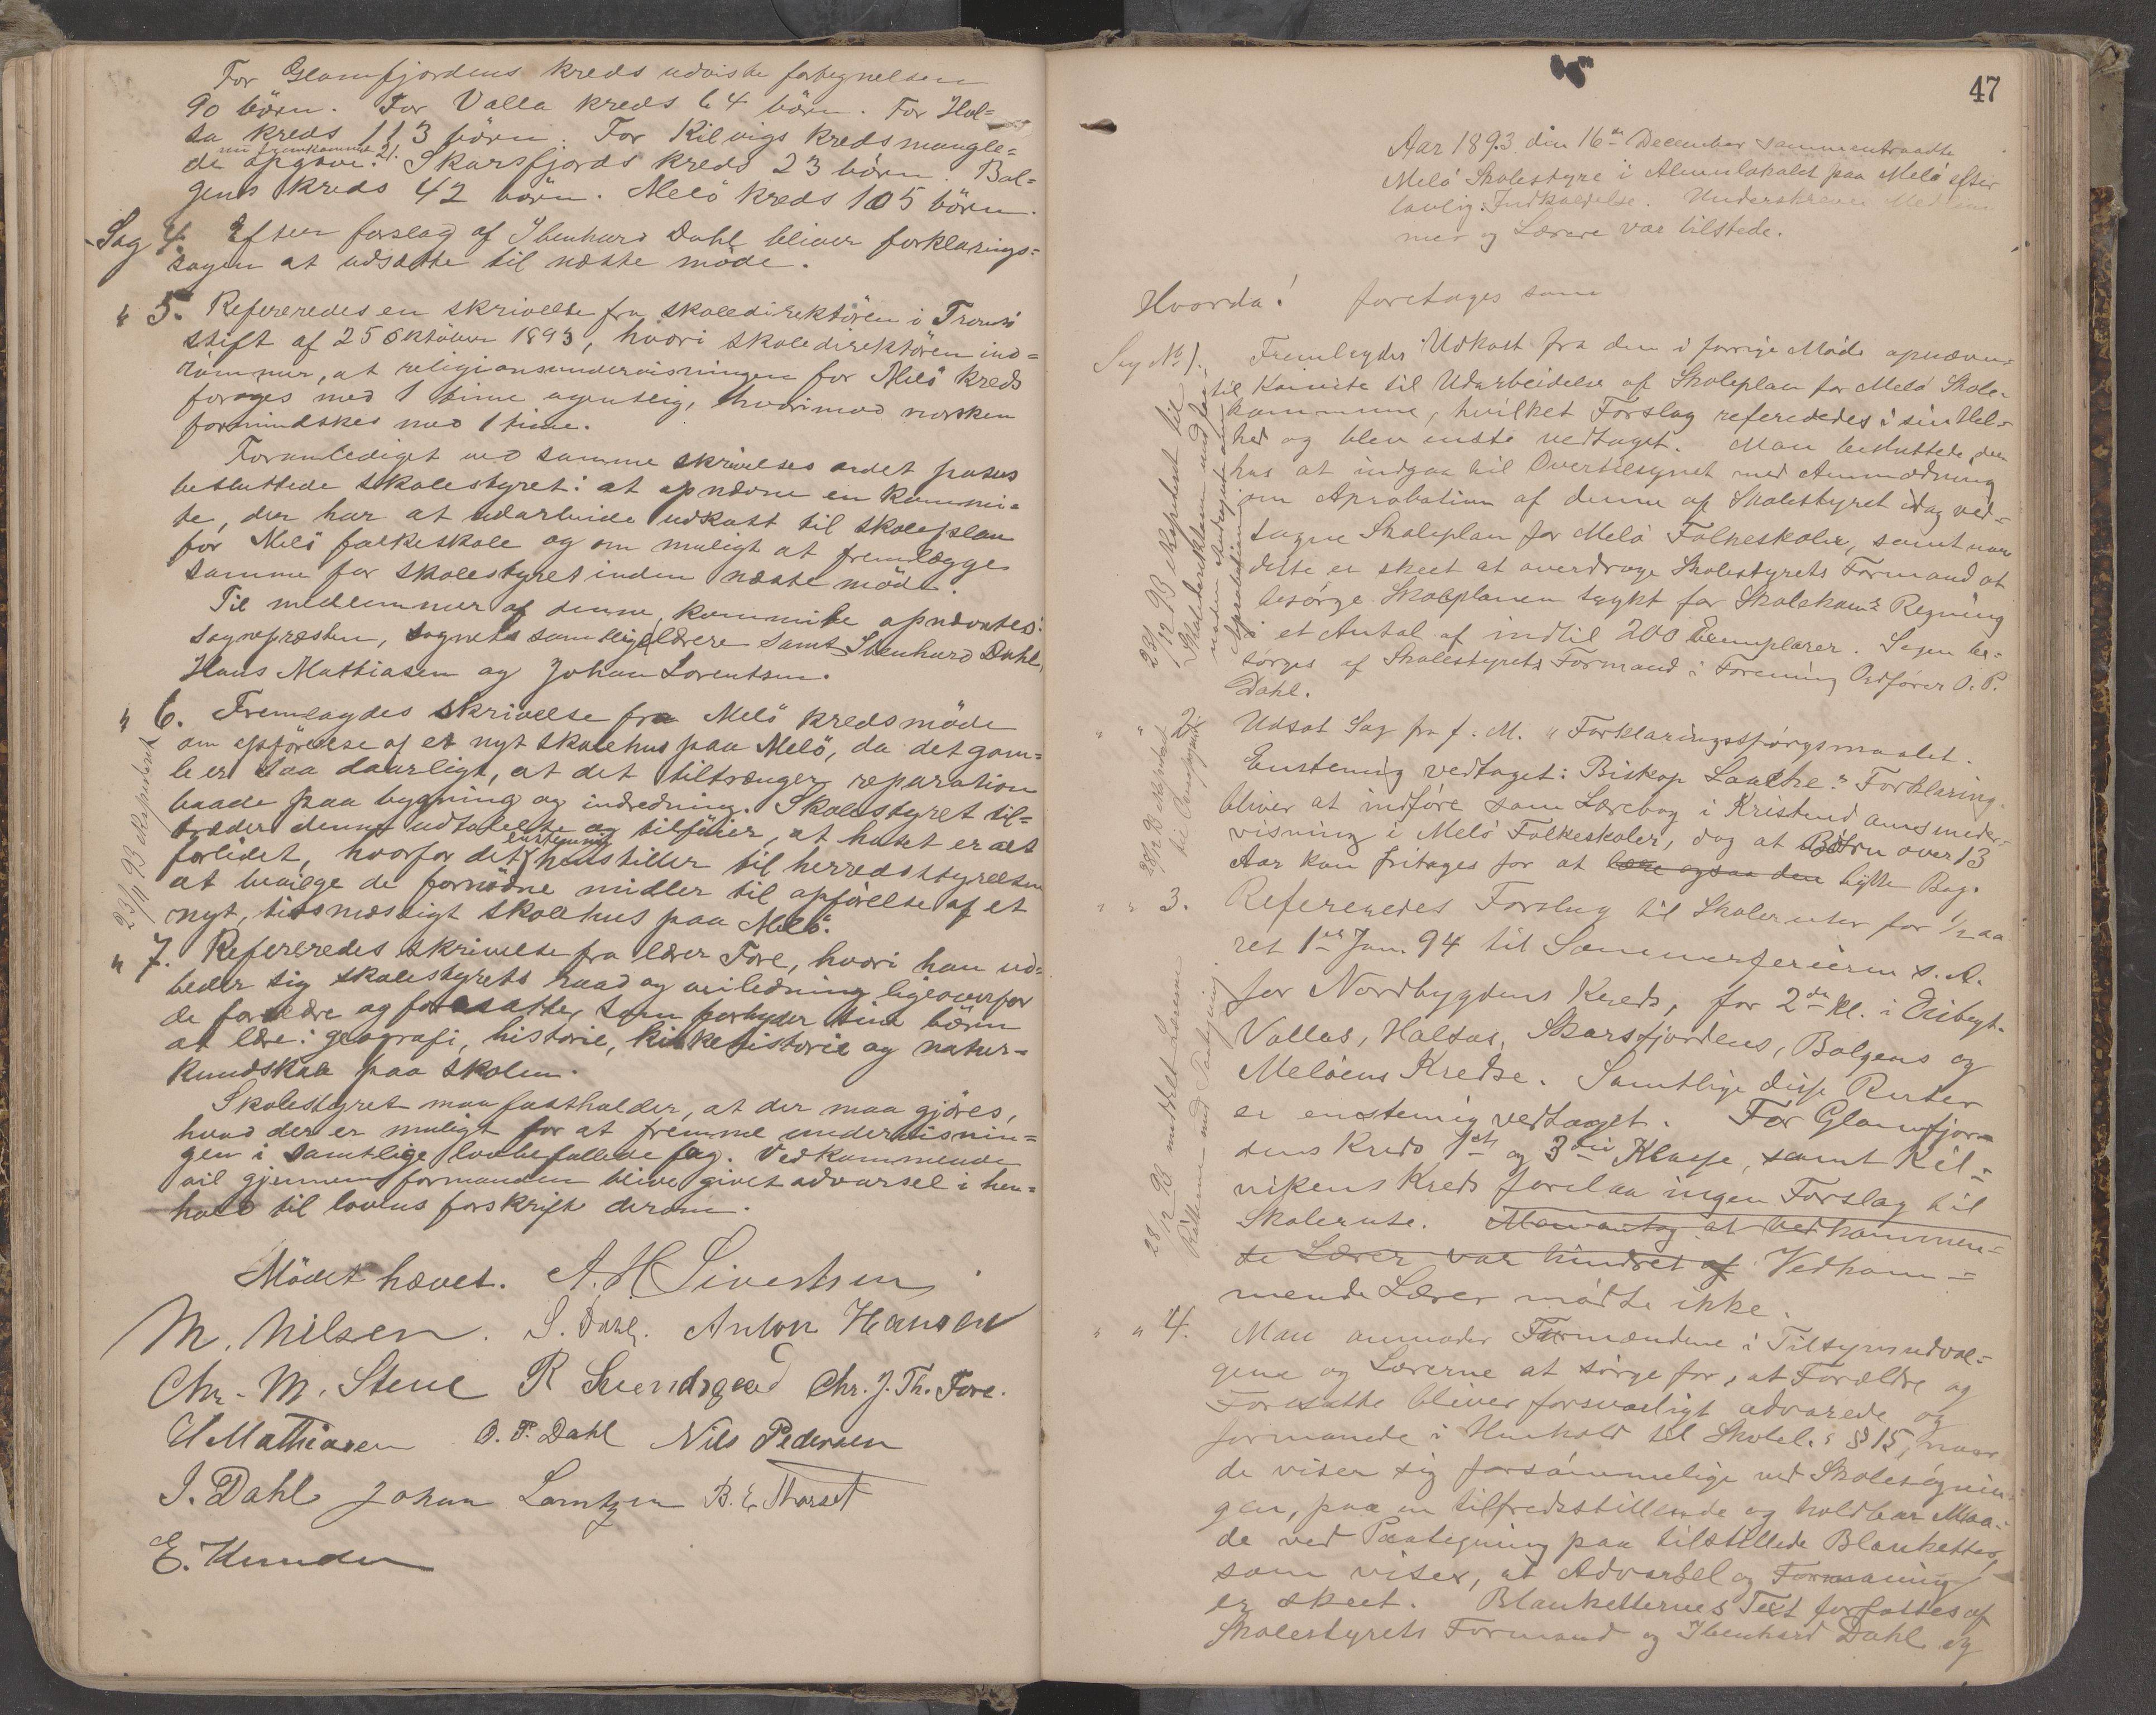 For Glomfjordens kreds udviste fortegnelsen
90 börn. For Valla kreds 64 börn. For Hal=
sa kreds 113 börn. For Kilvigs kreds mangle=
nu fremkommet 21.
de opgave. Skarsfjords kreds 23 börn. Bol=
gens kreds 42 börn. Melö kreds 105 börn.
Sag 4. Efter forslag af Ibenhard Dahl bliver forklarings=
sagen at udsætte til næste möde.
" 5. Refereredes en skrivelse fra skoledirektören i Tromsö
stift af 25 Oktober 1893, hvori skoledirektören ind=
römmer, at religionsundervisningen for Melö kreds
foröges med 1 time ugentlig, hvorimod norsken
formindskes med 1 time.
Foranlediget ved samme skrivelses andet passus
besluttede skolestyret: at opnævne en kommi=
te, der har at udarbeide udkast til skoleplan
for Melö folkeskole og om muligt at fremlægge
samme for skolestyret inden næste möde.
Til medlemmer af denne kommite opnævntes:
Sognepræsten, sognets samtlige lærere samt Ibenhard Dahl,
Hans Mathiasen og Johan Lorentsen.
" 6. Fremlagdes skrivelse fra Melö kredsmöde
om opförelse af et nyt skolehus paa Melö, da det gam=
le er saa daarligt, at det tiltrænger reparation
baade paa bygning og indredning. Skolestyret til=
træder denne udtalelse og tilföier, at huset er alt
enstemmig
forlidet, hvorfor det henstiller til herredsstyrelsen
at bevilge de fornödne midler til opförelse af et
nyt, tidsmæssigt skolehus paa Melö.
23/11 93 ekspederet
" 7. Refereredes skrivelse fra lærer Fore, hvori han ud=
beder sig skolestyrets raad og veiledning ligeoverfor
de forældre og foresatte, som forbyder sine börn
at lære: geografi, historie, kirkehistorie og natur=
kundskab paa skolen.
Skolestyret maa fastholder, at der maa gjöres,
hvad der er muligt for at fremme undervisnin=
gen i samtlige lovbefallede fag. Vedkommende
vil gjennem formanden blive givet advarsel i hen=
hold til lovens forskrift derom.
Mödet hævet. A. H. Sivertsen
M. Nilsen. S. Dahl. Anton Hansen
Chr. M. Stene R Svendsgaad Chr. J. Th. Fore.
H Mathiasen O. P. Dahl Nils Pedersen
I. Dahl Johan Lorntzen B. E. Thorset
E.
47
Aar 1893 den 16de December sammentraadte
Melö Skolestyre i Almuelokalet paa Melö efter
lovlig Indkaldelse. Underskrevne Medlem
mer og Lærere var tilstede.
Hvorda! foretoges som
Sag No 1. Fremlagdes Udkast fra den i forrige Möde opnævn=
te Komite til Udarbeidelse af Skoleplan for Melö Skole=
kommune, hvilket Forslag refereredes i sin Hel=
hed og blev enste vedtaget. Man besluttede der
has at indgaa til Overtilsynet med Anmodning
om Aprobation af denne af Skolestyret idag ved=
tagne Skoleplan for Melö Folkeskoler, samt naar
dette er skeet at overdrage Skolestyrets Formand at
besörge Skoleplanen trykt for Skolekoms Regning
i et Antal af indtil 200 Exemplarer. Sagen be=
sörges af Skolestyrets Formand i Forening Ordförer O. P.
Dahl.
28/12 93 ekspedert til
Skoledirektören med
2 Udsat Sag fra f. M. "Forklaringsspörgsmaalet.
Enstemig vedtaget: Biskop Laache's Forklaring
bliver at indföre som Lærebog i Kristendomsunder=
visning i Melö Folkeskoler, dog at Börn over 13
Aar kan fritages for at læse ogsaa den bytte Bog.
28/12 93 ekspedert
" " 3. Refereredes Forslag til Skoleruter for 1/2 aa
ret 1ste Jan. 94 til Sommerferierne s. A.
for Nordbygdens Kreds, for 2den Kl. i
Vallas, Halsas, Skarsfjordens, Bolgens og
Melöens Kredse. Samtlige disse Ruter
er enstemig vedtaget. For Glomfjor=
dens Kreds 1ste og 3die Klasse, samt Kil=
vikens Kreds forelaa ingen Forslag til
Skolerute. Man antog at Vedkommen=
de Lærer var hindret af Vedkom=
mende Lærer mödte ikke.
28/12 93
" " 4. Man anmoder Formændene i Tilsynsudval=
gene og Lærerne at sörge for, at Forældre og
Foresatte bliver forsvarligt advarede og
formanede i Henhold til Skolel. § 15, naar
de viser sig forsömmelige ved Skolesögnin=
gen, paa en tilfredsstillende og holdbar Maa=
de ved Paategning paa tilstillede Blanketter,
som viser, at Advarsel og Formaning
er skeet. Blanketternes Text forfattes af
Skolestyrets Formand og Ibenhard Dahl og